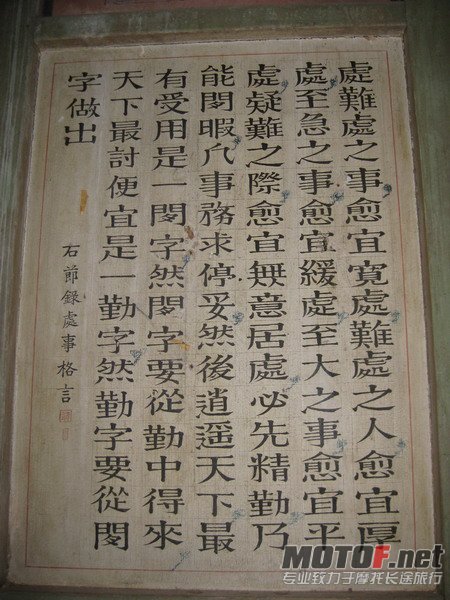 處難處之事愈宜寬處難處之人愈宜厚
處至急之事愈宜緩處至大之事愈宜平
處疑難之際愈宜無意居處必先精勤乃
能閑暇凡事務求停妥然後逍遥天下最
有受用是一閑字然閑字要從勤中得來
天下最討便宜是一勤字然勤字要從閑
字做出
右節錄處事格言
MOTOF.net
专业致力于摩托长途旅行